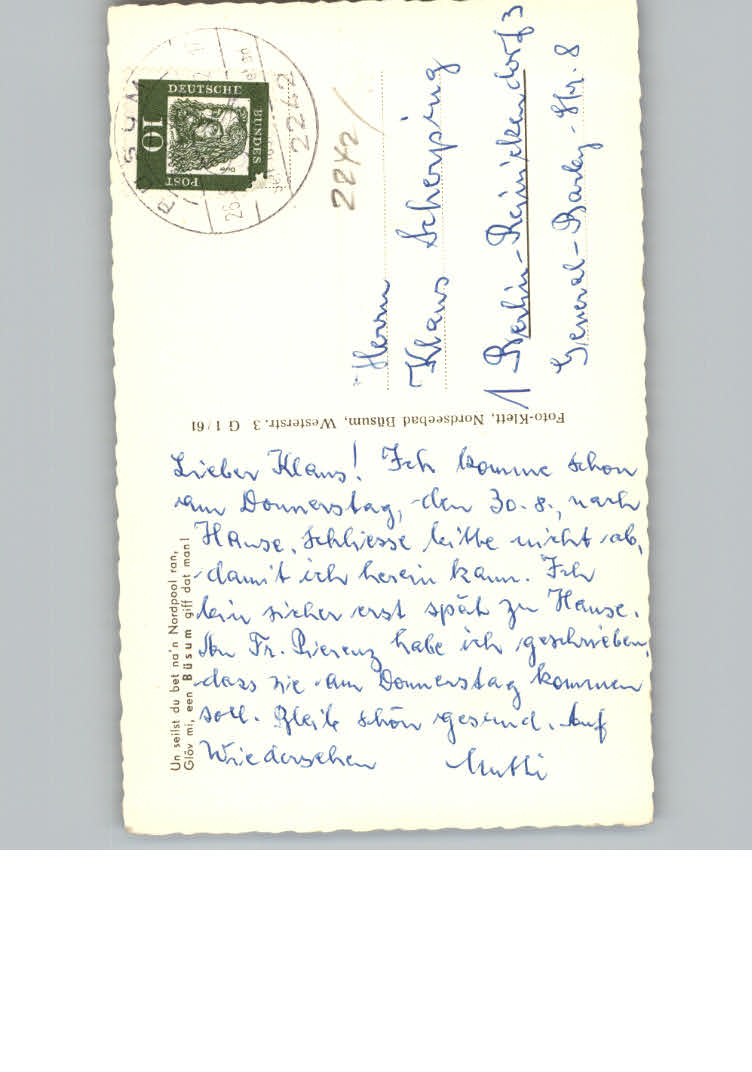 Lieber Klaus! Ich komme schon
am Donnerstag, den 30.8., nach
Hause. Schliesse bitte nicht ab,
damit ich herein kann. Ich
bin sicher erst spät zu Hause.
An Fr. habe ich geschrieben,
dass sie am Donnerstag kommen
soll. Bleib schön gesund. Auf
Wiedersehen Mutti
Un seilst du bet na'n Nordpool ran,
Glöv mi, een Büsum giff dat man!
Foto-Klett, Nordseebad Büsum, Westerstr. 3 G 1/61
Herrn
Klaus Scherping
1 Berlin-Reinickendorf 3
General-Barby-Str. 8
2242/
DEUTSCHE
BUNDES
POST
10
BÜSUM
2242